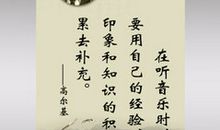 在听音乐时
要用自己的经验
印象和知识的积
累去补充。
——高尔基